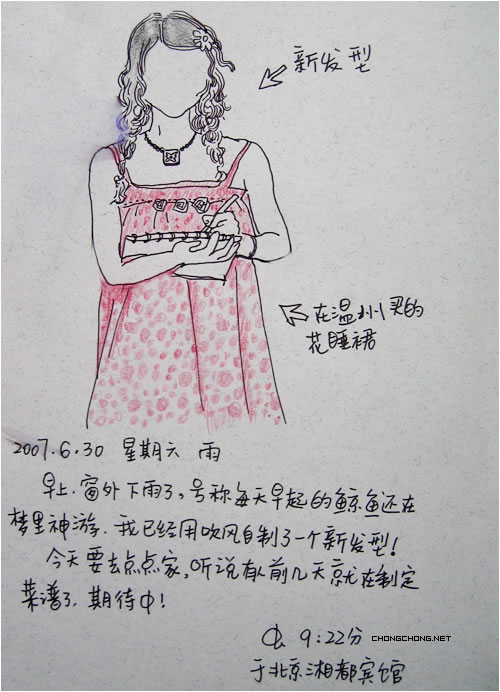 新发型
在温州买的
花睡裙
2007.6.30 星期六 雨
早上.窗外下雨了,号称每天早起的鲸鱼还在
梦里神游.我已经用吹风自制了一个新发型!
今天要去点点家,听说有人前几天就在制定
菜谱了.期待中!
虫 9:22分
CHONGCHONG.NET
于北京湘都宾馆